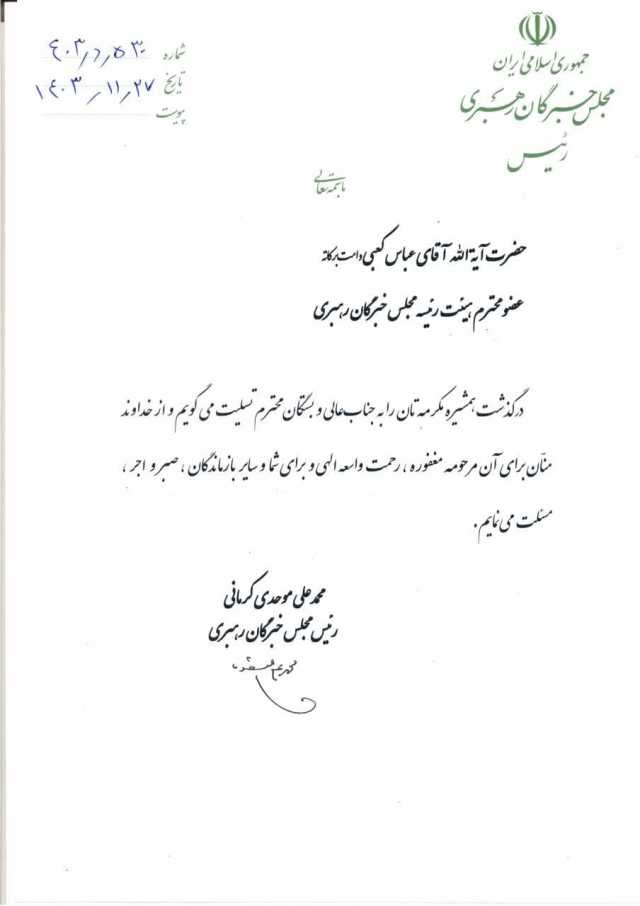 جمهوری اسلامی ایران
مجلس خبرگان رهبری
رئیس
شماره
تاریخ ۱۴۰۳/۱۱/۲۷
پیوست
باسمه تعالی
حضرت آیة الله آقای عباس کعبی دامت برکاته
عضو محترم هیئت رئیسه مجلس خبرگان رهبری
درگذشت همشیره مکرمه تان را به جناب عالی و بستگان محترم تسلیت می گویم و از خداوند
منّان برای آن مرحومه مغفوره ، رحمت واسعه الهی و برای شما و سایر بازماندگان ، صبر و اجر ،
مسئلت می نمایم.
محمد علی موحدی کرمانی
رئیس مجلس خبرگان رهبری